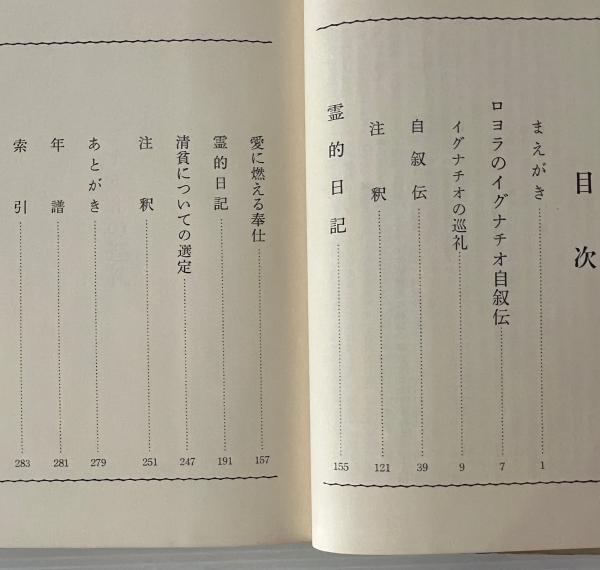 目次
まえがき 1
ロヨラのイグナチオ自叙伝 7
イグナチオの巡礼 9
自叙伝 39
注釈 121
霊的日記 155
愛に燃える奉仕 157
霊的日記 191
清貧についての選定 247
注釈 251
あとがき 279
年譜 281
索引 283